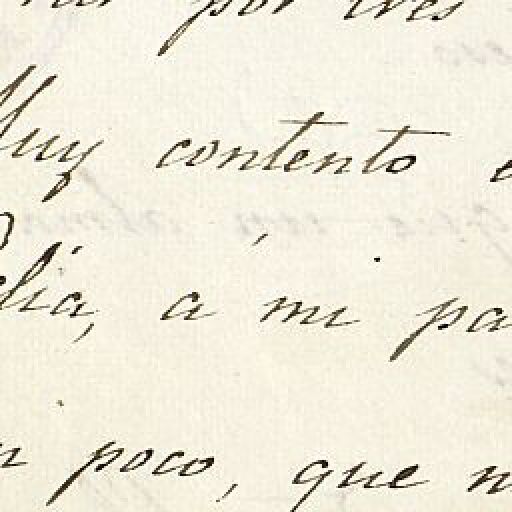 por tres
Muy contento
á mi pa
poco, que